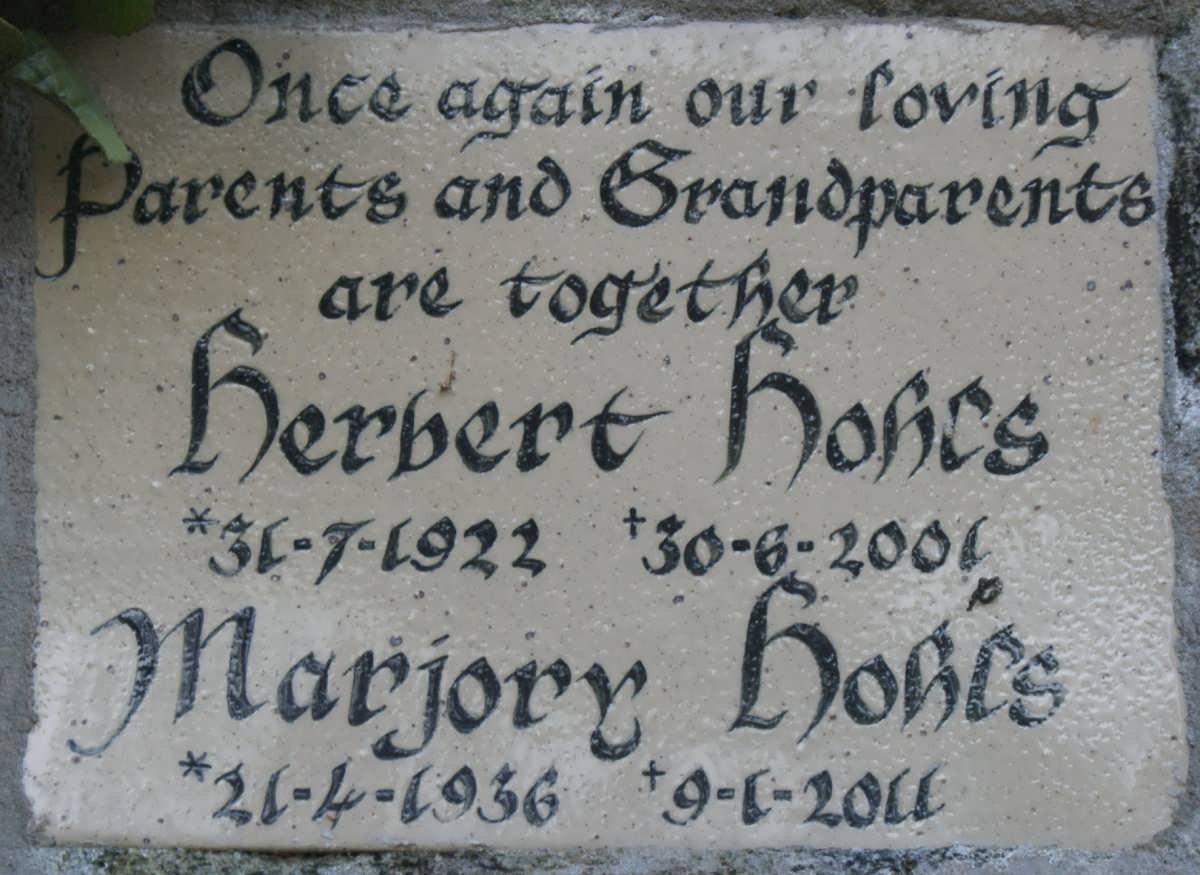 Once again our loving
Parents and Grandparents
are together
Herbert Hohls
*31-7-1922 †30-6-2001
Marjory Hohls
*21-4-1936 †9-1-2011